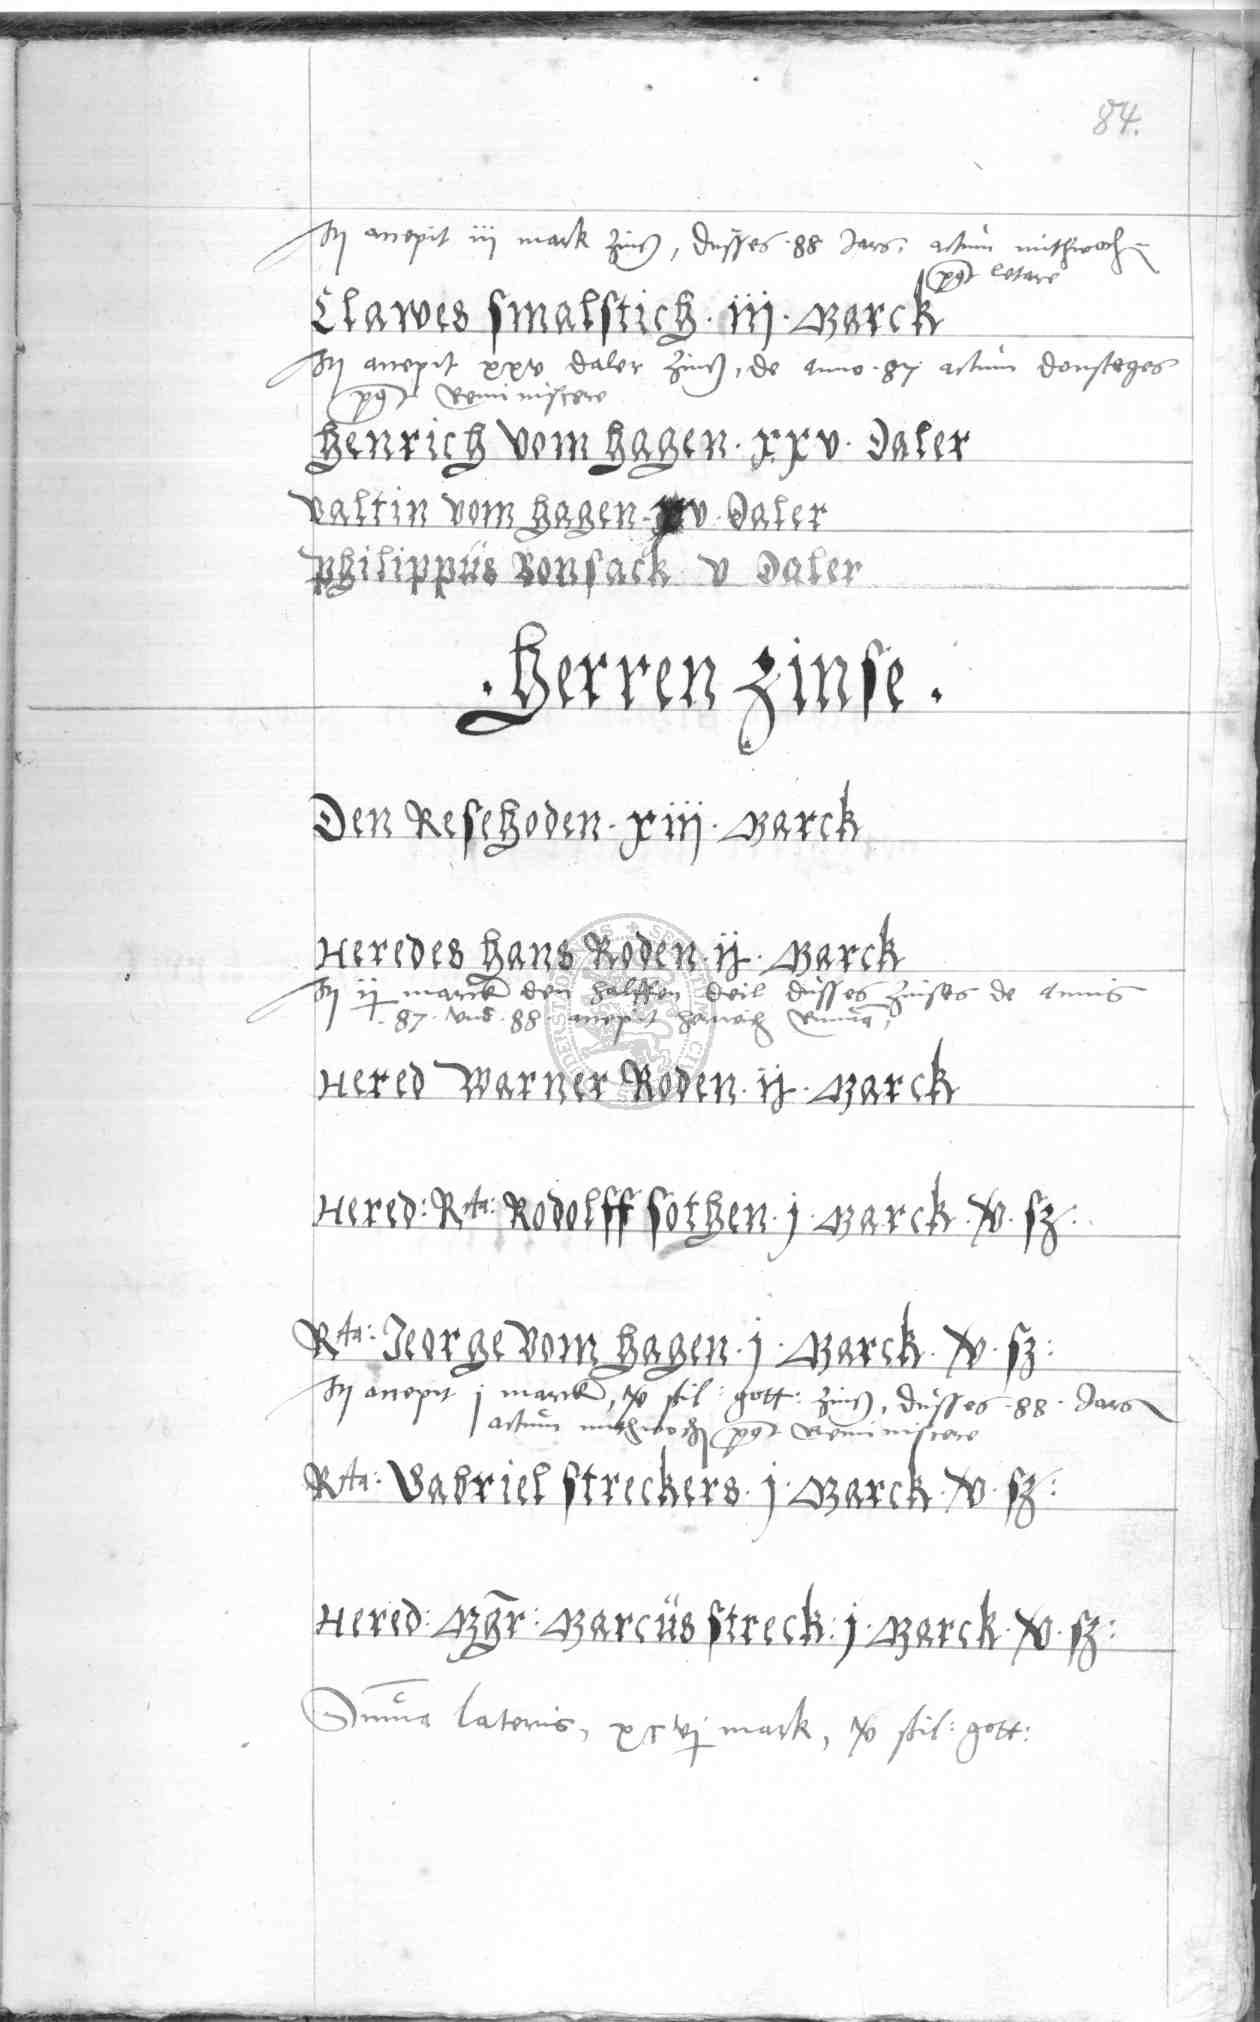 84.
Ip accepit iij mark zinß, dusses 88 Jars, actum mithwoch
post letare
Clawes smalstich · iij · Marck
Ip accepit xxv daler zinß, de anno 87 actum donsteges
post Reminiscere
Henrich vom Hagen · xxv · Daler
Valtin vom Hagen · xv · Daler
Philippus Bonsack v Daler
· Herren Zinse ·
Den Resehoden · xiij · Marck
Heredes Hans Roden · ij · Marck
Ip ij marck den halffen deil dusses zinses de annis
87 vnd 88 accepit Henrich
Hered Warner Roden · ij · Marck
Hered: Rta: Rodolff Sothen · j · Marck · xv · sz:
Rta: Jeorge vom Hagen · j · Marck · xv · sz:
Ip accepit j marck, xv shil: gott: zinß, dusses 88 Jars
actum mithwoch post Reminiscere
Rta: Gabriel Streckers · j · Marck · xv · sz:
Hered: Mgr: Marcus Streck: j · Marck · xv · sz:
Summa lateris, xcvj mark, xv shil: gott: